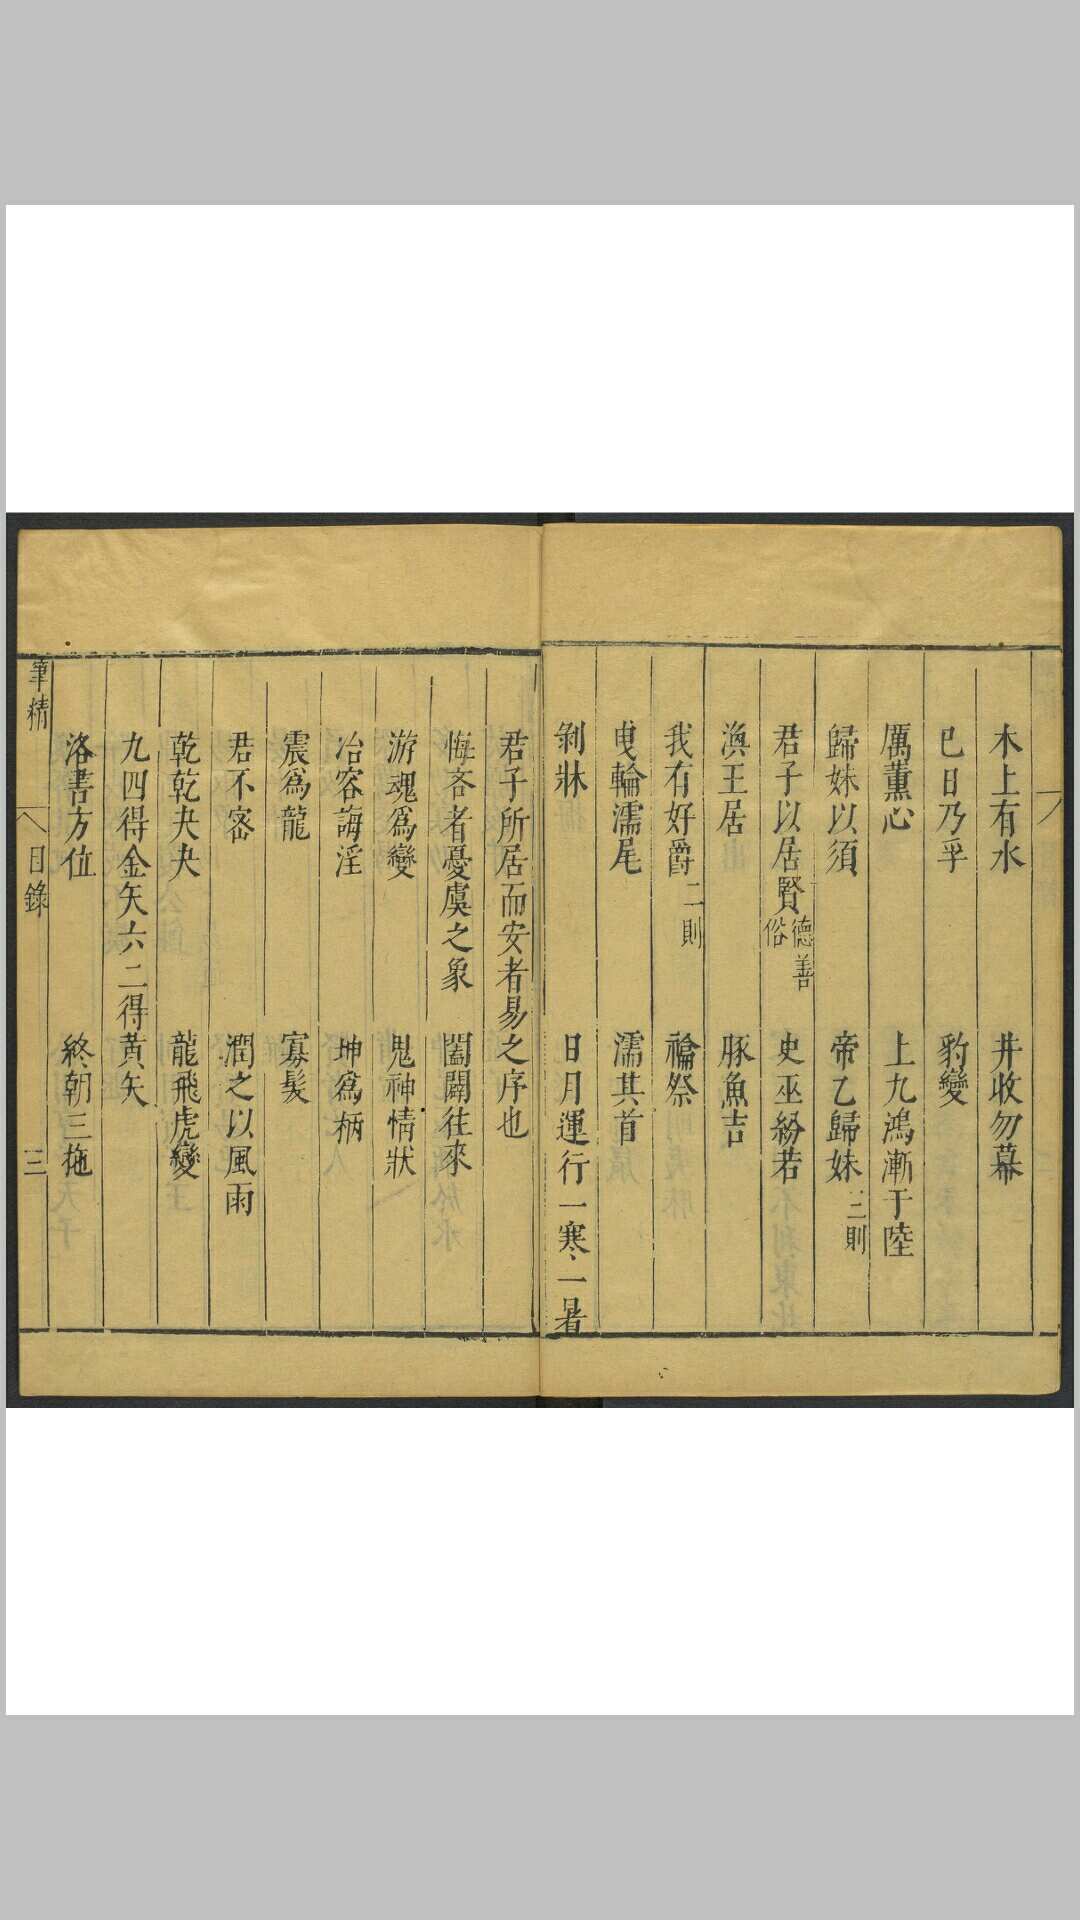 木上有水　井收勿幕
巳日乃孚　豹變
厲薰心　上九鴻漸于陸
歸妹以須　帝乙歸妹二則
君子以居賢德善俗　史巫紛若
渙王居　豚魚吉
我有好爵二則　禴祭
曳輪濡尾　濡其首
剝牀　日月運行一寒一暑
君子所居而安者易之序也
悔吝者憂虞之象　闔闢往來
游魂爲變　鬼神情狀
冶容誨淫　坤爲柄
震爲龍　寡髮
君不密　潤之以風雨
乾乾夬夬　龍飛虎變
九四得金矢六二得黃矢
洛書方位　終朝三拖
筆精　目錄　三